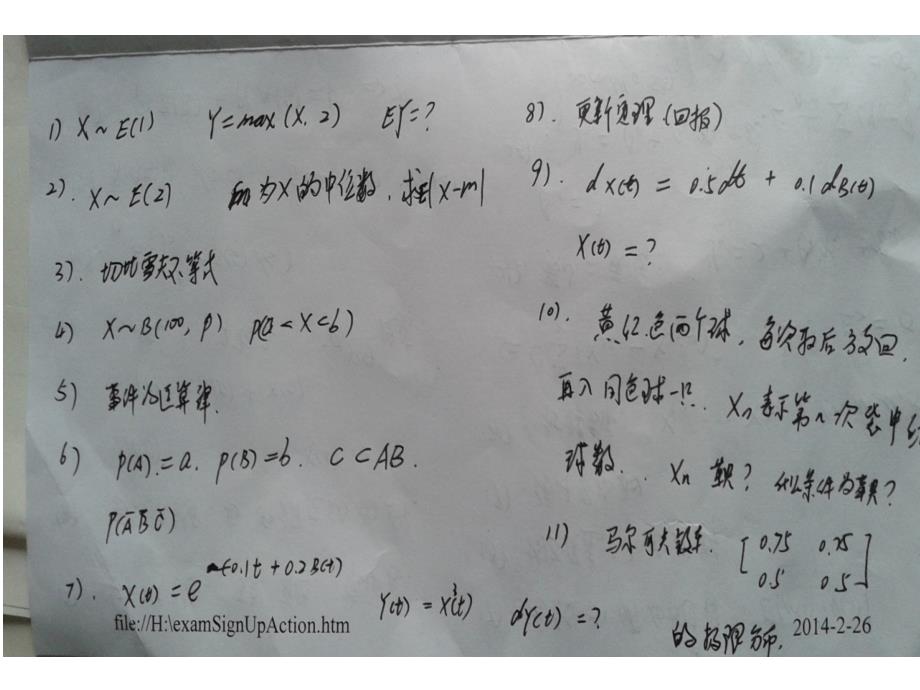 1) X~E(1) Y=max(X,2) EY=?
2). X~E(2) m为X的中位数,求E|X-m|
3). 切比雪夫不等式
4) X~B(100,p) P(a<X<b)
5) 事件的运算律.
6) P(A)=a. P(B)=b. C⊂AB.
P(A̅B̅C̅)
7). X(t)=e^{-0.1t+0.2B(t)} Y(t)=X³(t) dY(t)=?
file://H:\examSignUpAction.htm
8). 更新定理(回报)
9). dX(t) = 0.5dt + 0.1dB(t)
X(t)=?
10). 黄红色两个球,每次取后放回.
再入同色球一只. Xn表示第n次袋中红
球数. Xn 鞅? 什么条件为鞅?
11) 马尔可夫链 [0.75 0.25
0.5 0.5]
的极限分布.
2014-2-26